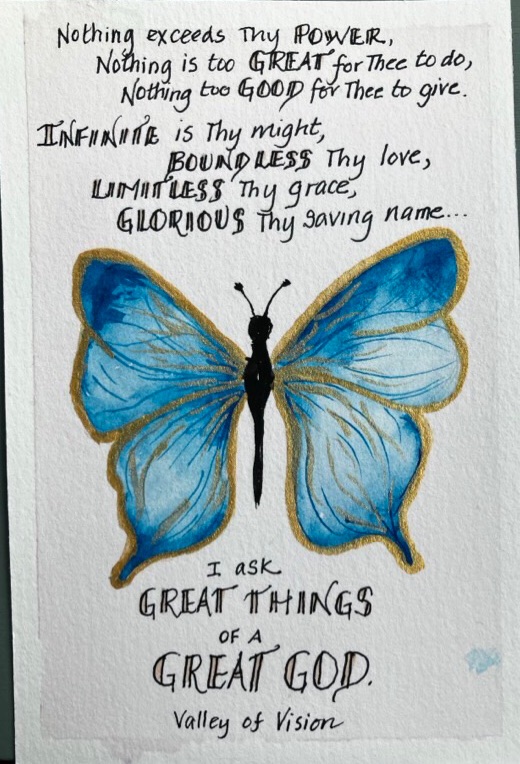 Nothing exceeds Thy POWER,
Nothing is too GREAT for Thee to do,
Nothing too GOOD for Thee to give.
INFINITE is Thy might,
BOUNDLESS Thy love,
LIMITLESS Thy grace,
GLORIOUS Thy saving name...
I ask
GREAT THINGS
OF A
GREAT GOD.
Valley of Vision